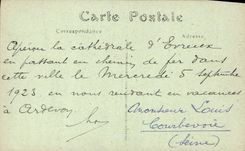 Carte Postale
Correspondance
Adresse
Aperçu la cathédrale d'Evreux
en passant en chemin de fer dans
cette ville le Mercredi 5 septembre
1923 en nous rendant en vacances
à Ardevon
Monsieur Louis
Courbevoie
(Seine)